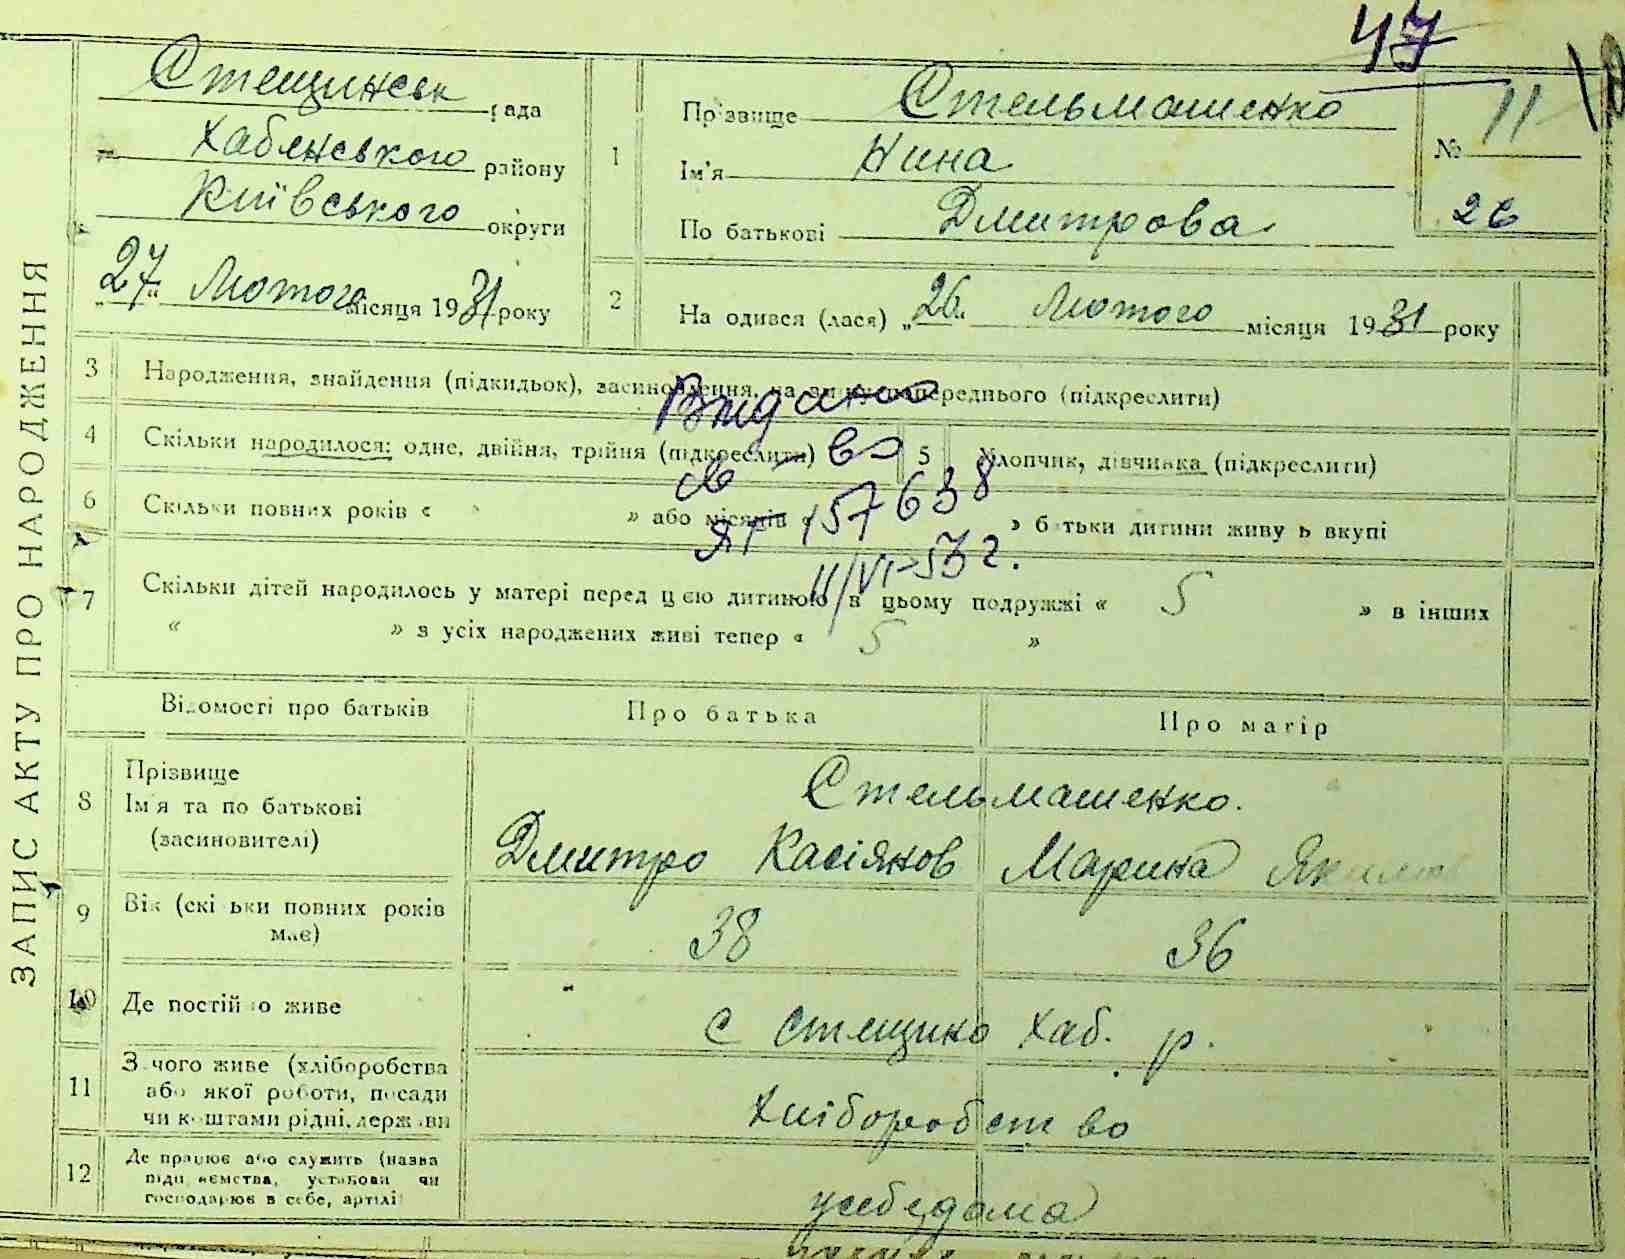 47
ЗАПИС АКТУ ПРО НАРОДЖЕННЯ
Стещинськ рада
Хабенського району
Київського округи
27 Лютого місяця 1931 року
1
Прізвище Стельмашенко
Ім'я Нина
По батькові Дмитрова
№ 11
26
2 На одився (лася) „26" Лютого місяця 1931 року
3 Народження, знайдення (підкидьок), засиновлення, попереднього (підкреслити)
Видано
4 Скільки народилося: одне, двійня, трійня (підкреслити)
5 Хлопчик, дівчинка (підкреслити)
св-во
6 Скільки повних років « » або місяців « » батьки дитини живуть вкупі
ЯГ 157638
11/VI-53 г.
7 Скільки дітей народилось у матері перед цією дитиною в цьому подружжі « 5 » в інших
« » з усіх народжених живі тепер « 5 »
Відомості про батьків Про батька Про матір
8 Прізвище
Ім'я та по батькові
(засиновителі)
Стельмашенко.
Дмитро Касіянов Марина
9 Вік (скільки повних років
має)
38 36
10 Де постійно живе
с Стещино Хаб. р.
11 З чого живе (хліборобства
або якої роботи, посади
чи коштами рідні, держави
Хліборобство
12 Де працює або служить (назва
підприємства, установи чи
господарює в себе, артілі
усебедома